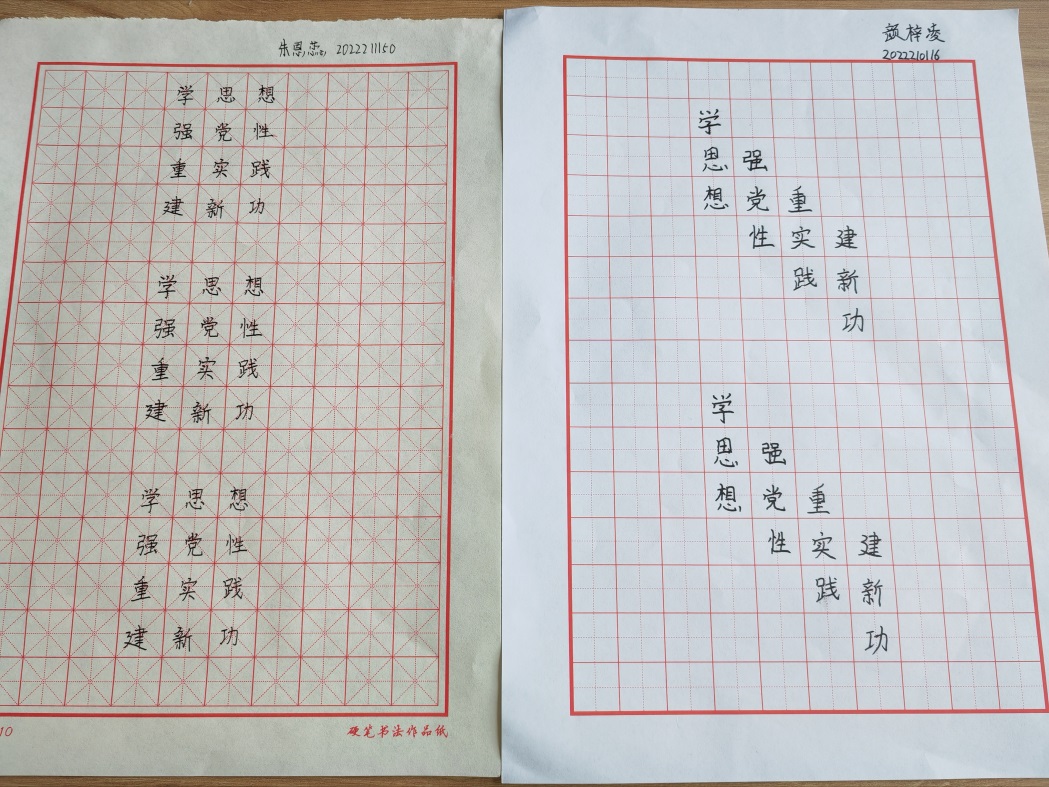 朱恩蕊 2022211150
学思想
强党性
重实践
建新功
学思想
强党性
重实践
建新功
学思想
强党性
重实践
建新功
10
硬笔书法作品纸
颜梓凌
2022210116
学思想
强党性
重实践
建新功
学思想
强党性
重实践
建新功